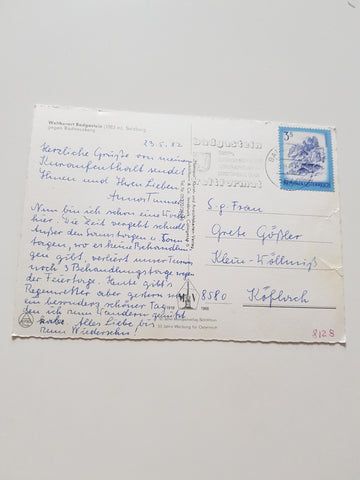 Weltkurort Badgastein (1083 m), Salzburg
gegen Radhausberg
29.5.82
Herzliche Grüße von meinem
Kuraufenthalt sendet
Ihnen und Ihren Lieben
Nun bin ich schon eine Woche
hier. Die Zeit vergeht schnell.
Außer den Samstagen u. Sonn-
tagen, wo es keine Behandlun-
gen gibt, verliert unser Turnus
noch 3 Behandlungstage wegen
der Feiertage. Heute gibt's
Regenwetter aber gestern war
ein besonders schöner Tag
den ich zum Wandern genützt
habe. Alles Liebe bis
zum Wiedersehn!
badgastein
weltformat
3 S
REPUBLIK ÖSTERREICH
S.g. Frau
Grete Gößler
Klein-Wöllmiß
8580 Köflach
8128